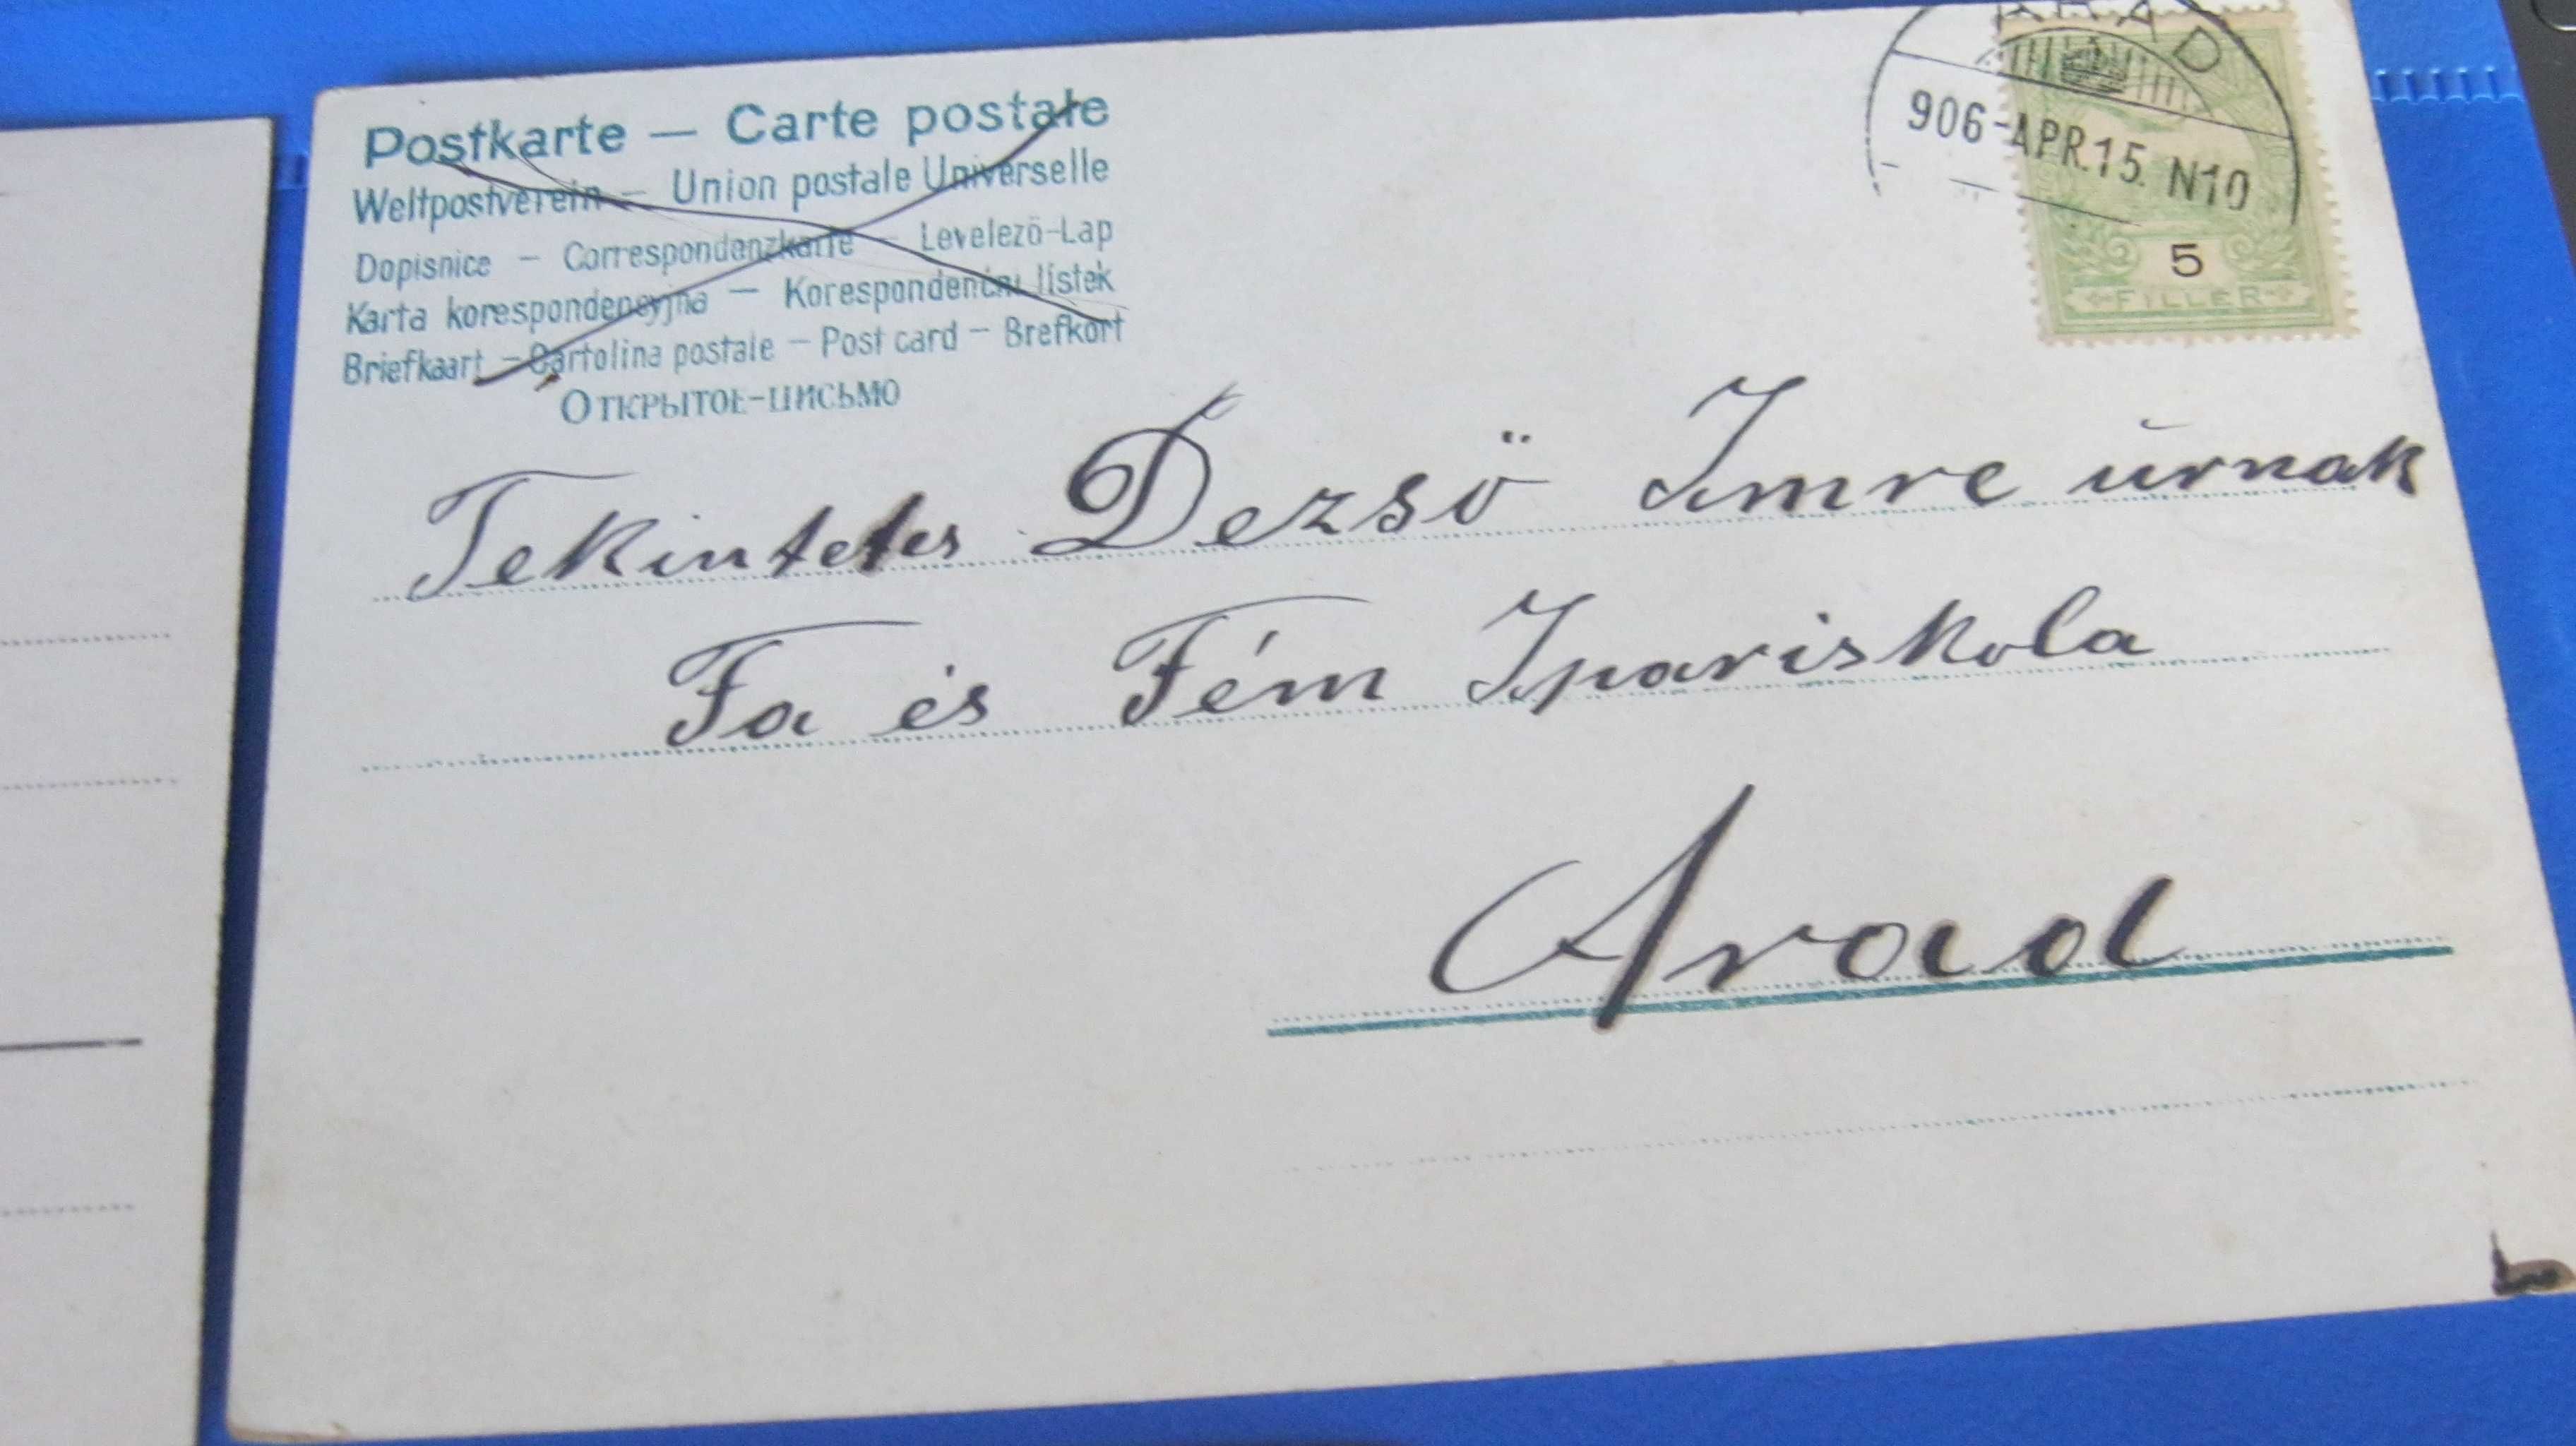 Postkarte — Carte postale
Weltpostverein — Union postale Universelle
Dopisnice — Correspondenzkarte — Levelezö-Lap
Karta korespondencyjna — Korespondenční lístek
Briefkaart — Cartolina postale — Post card — Brefkort
Открытое-письмо
ARAD
906-APR.15. N10
5
FILLÉR
Tekintetes Dezső Imre úrnak
Fa és Fém Ipariskola
Arad